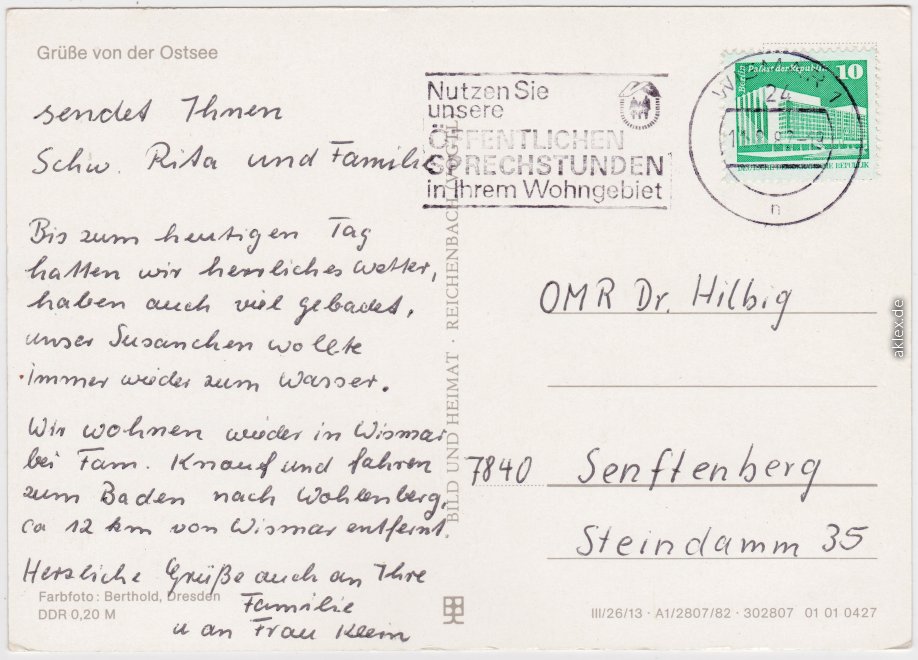 Grüße von der Ostsee
sendet Ihnen
Schw. Rita und Familie
Bis zum heutigen Tag
hatten wir herrliches Wetter,
haben auch viel gebadet,
unser Susanchen wollte
immer wieder zum Wasser.
Wir wohnen wieder in Wismar
bei Fam. Knauf und fahren
zum Baden nach Wohlenberg,
ca 12 km von Wismar entfernt.
Herzliche Grüße auch an Ihre
Familie
u an Frau Klem
Farbfoto: Berthold, Dresden
DDR 0,20 M
BILD UND HEIMAT · REICHENBACH (VOGTL)
Nutzen Sie
unsere
ÖFFENTLICHEN
SPRECHSTUNDEN
in Ihrem Wohngebiet
WISMAR 1
24
n
Berlin Palast der Republik
10
DEUTSCHE DEMOKRATISCHE REPUBLIK
OMR Dr. Hilbig
7840 Senftenberg
Steindamm 35
III/26/13 · A1/2807/82 · 302807 01 01 0427
aklex.de